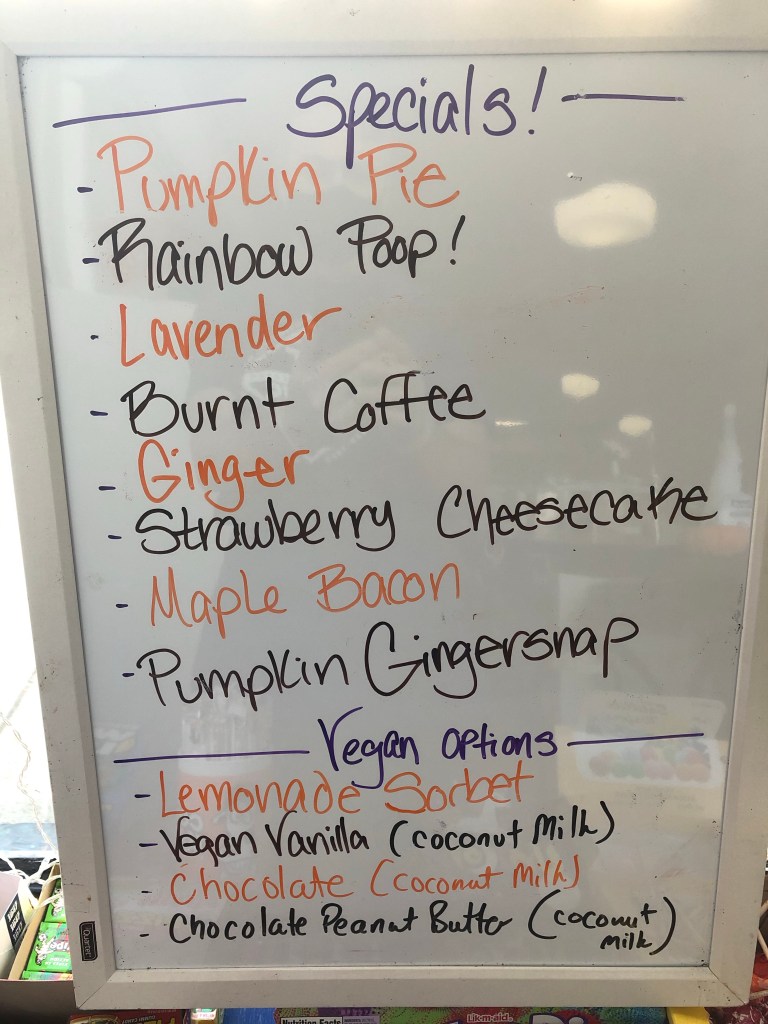 Specials!
- Pumpkin Pie
- Rainbow Poop!
- Lavender
- Burnt Coffee
- Ginger
- Strawberry Cheesecake
- Maple Bacon
- Pumpkin Gingersnap
Vegan options
- Lemonade Sorbet
- Vegan Vanilla (coconut Milk)
- Chocolate (coconut Milk)
- Chocolate Peanut Butter (coconut
milk)
Quartet
Nutrition Facts
Lik-m-aid